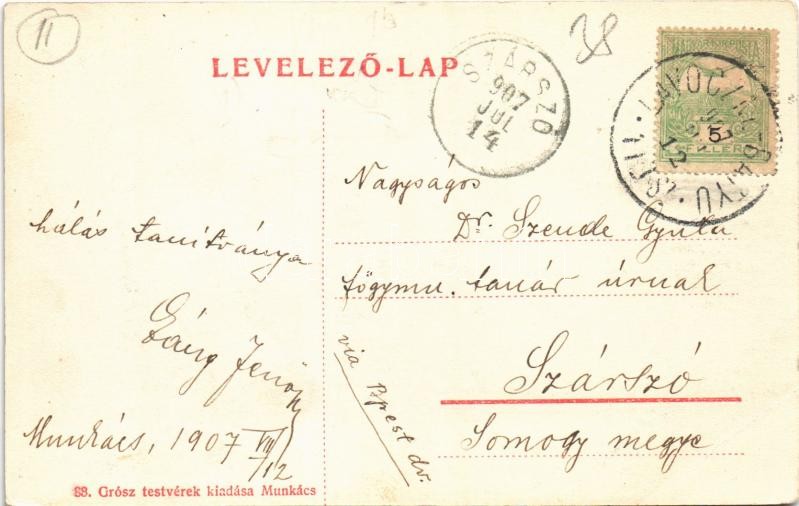 11
38
LEVELEZŐ-LAP
SZÁRSZÓ
907
JUL
14
LAVOCZNE-BATYU
12
5
FILLÉR
hálás tanítványa
Jenő
Munkács, 1907 VII/12
Nagyságos
Dr. Szende Gyula
főgymn. tanár úrnak
Szárszó
Somogy megye
via Bpest dv.
88. Grósz testvérek kiadása Munkács